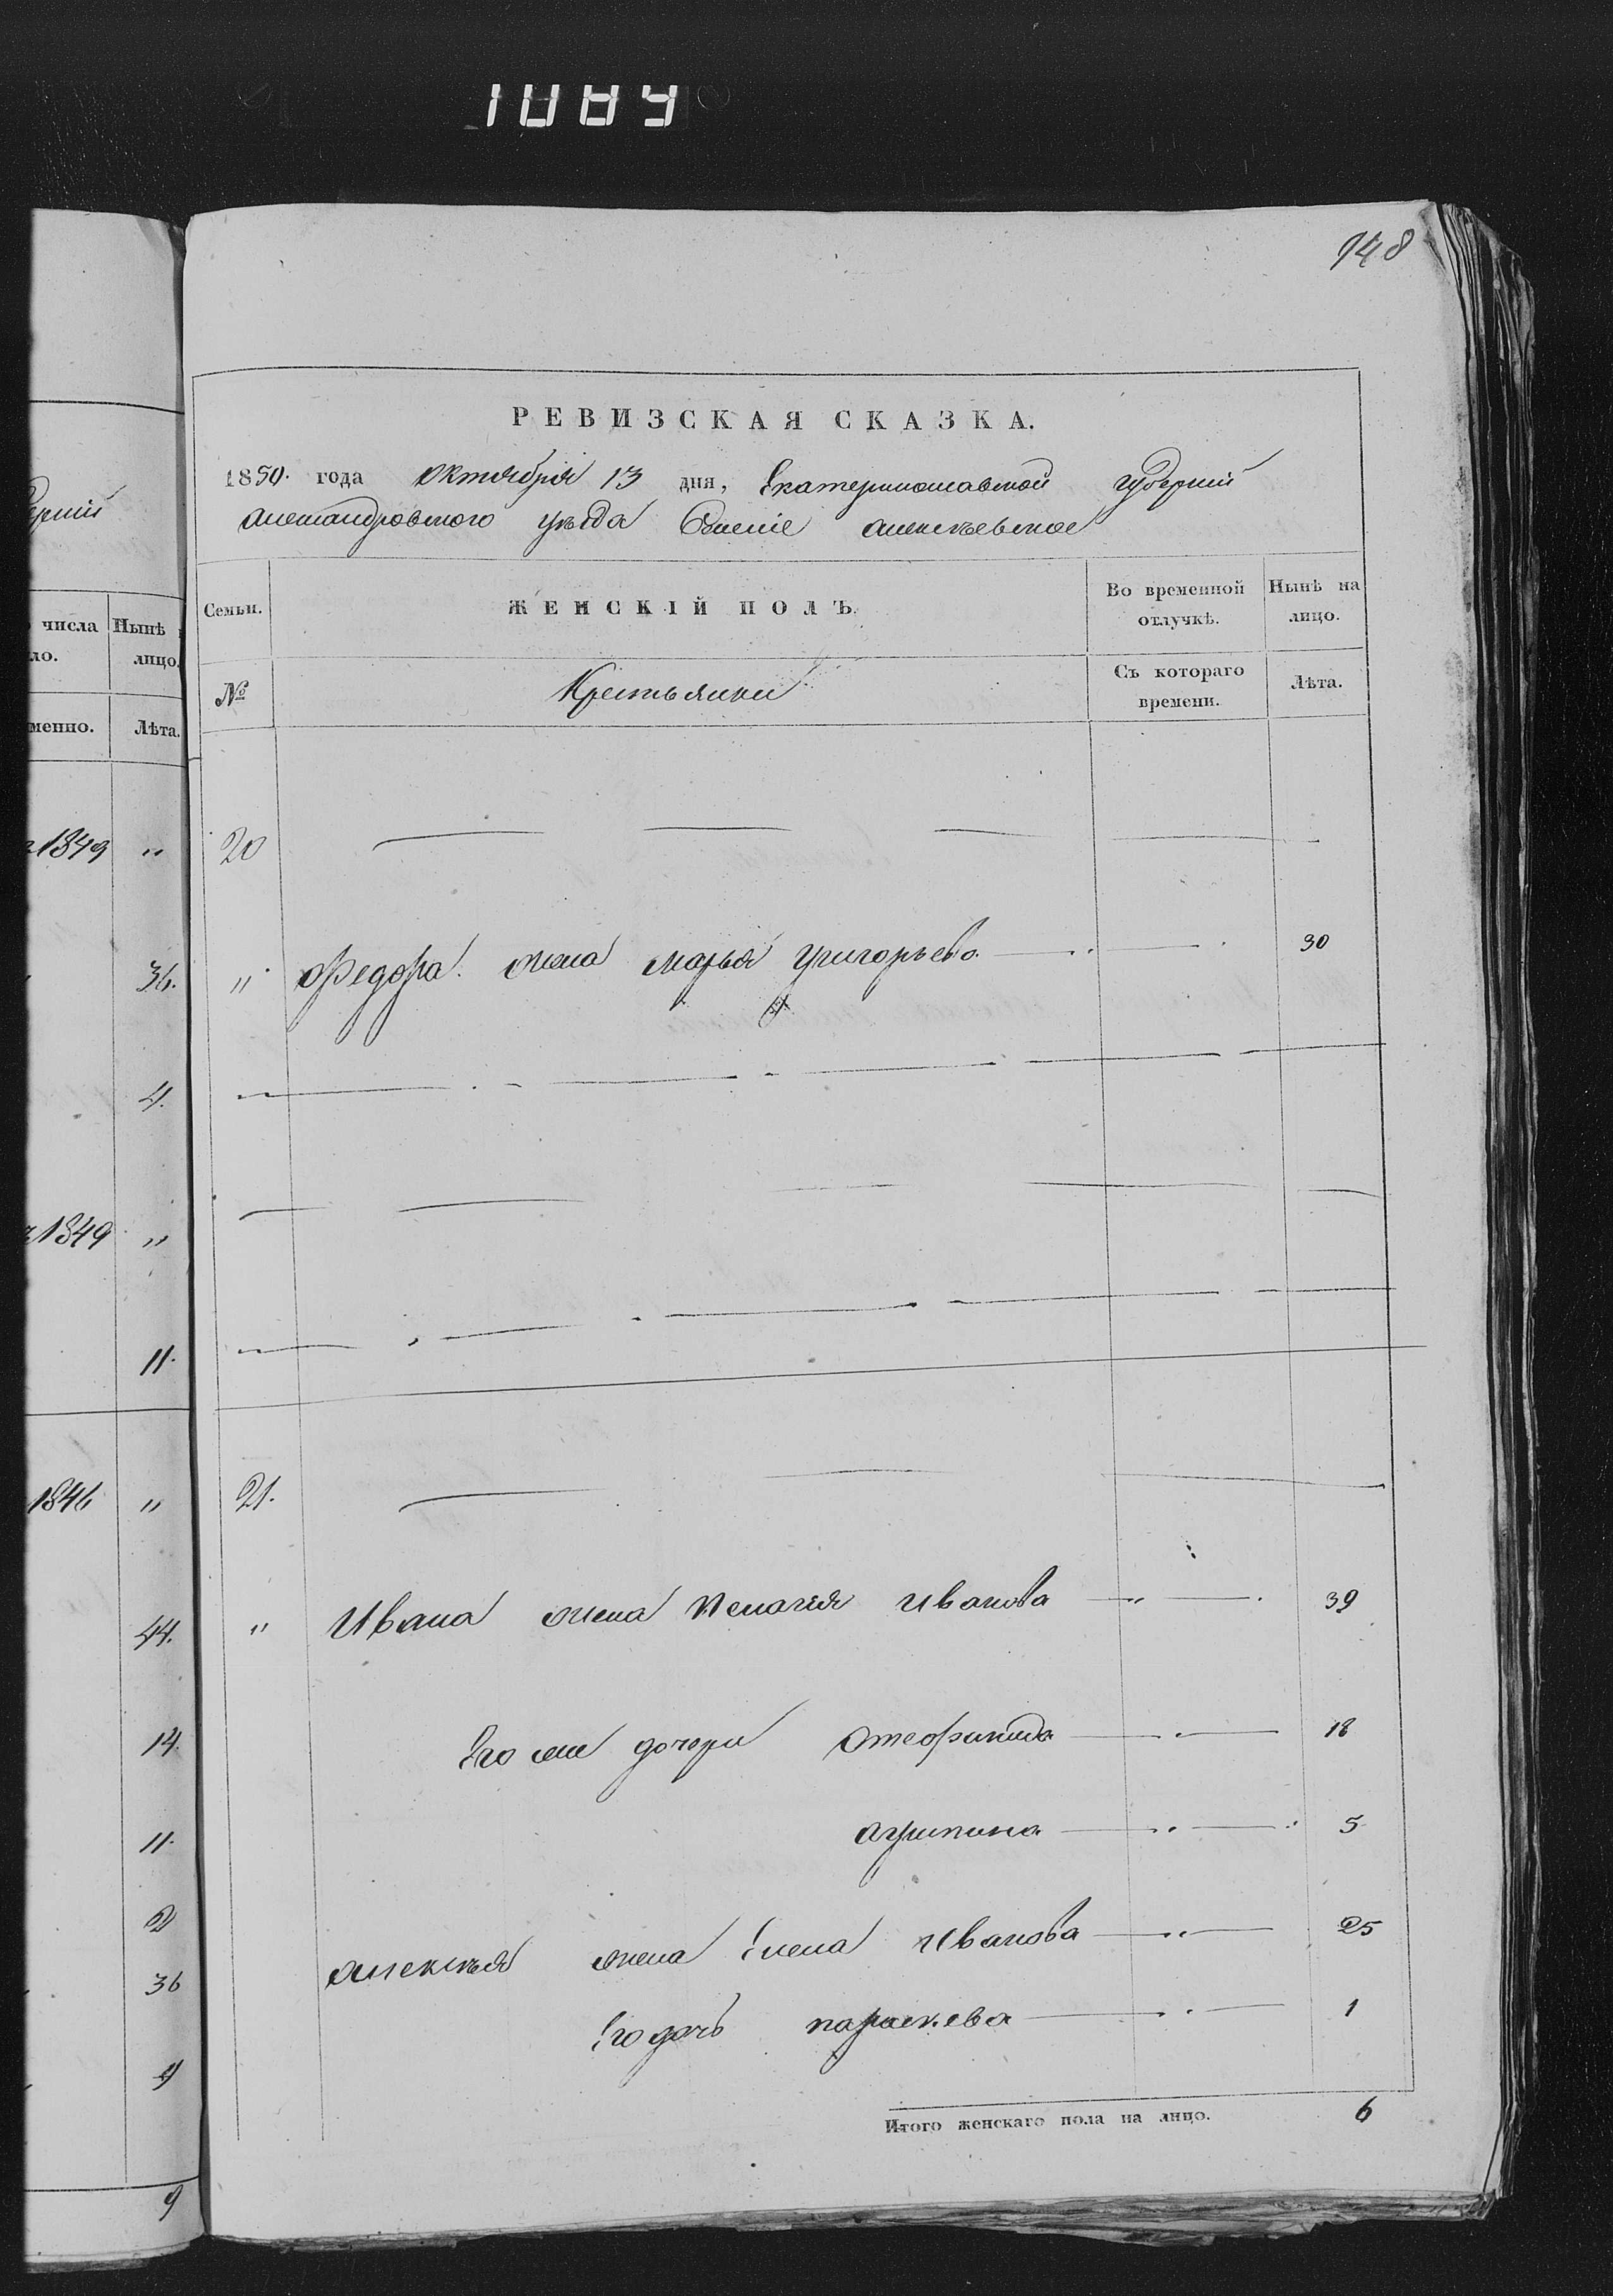 1089
148
РЕВИЗСКАЯ СКАЗКА.
1850. года Октября 13 дня, Екатеринославской губернии
Александровского уѣзда Алексѣевское
Семьи. ЖЕНСКІЙ ПОЛЪ. Во временной отлучкѣ. Нынѣ на лицо.
№ Крестьянки Съ котораго времени. Лѣта.
числа Нынѣ
ло. лицо.
менно. Лѣта.
1849 "
36.
4.
1849 "
11.
1846 "
44.
14.
11.
2
36
9
9
20
" Федора жена Марья Григорьева 30
21.
" Ивана жена Пелагея Иванова 39
Его же дочери 18
Агрипина 5
Алексѣя жена Елена Иванова 25
Его дочь Параскева 1
Итого женскаго пола на лицо. 6